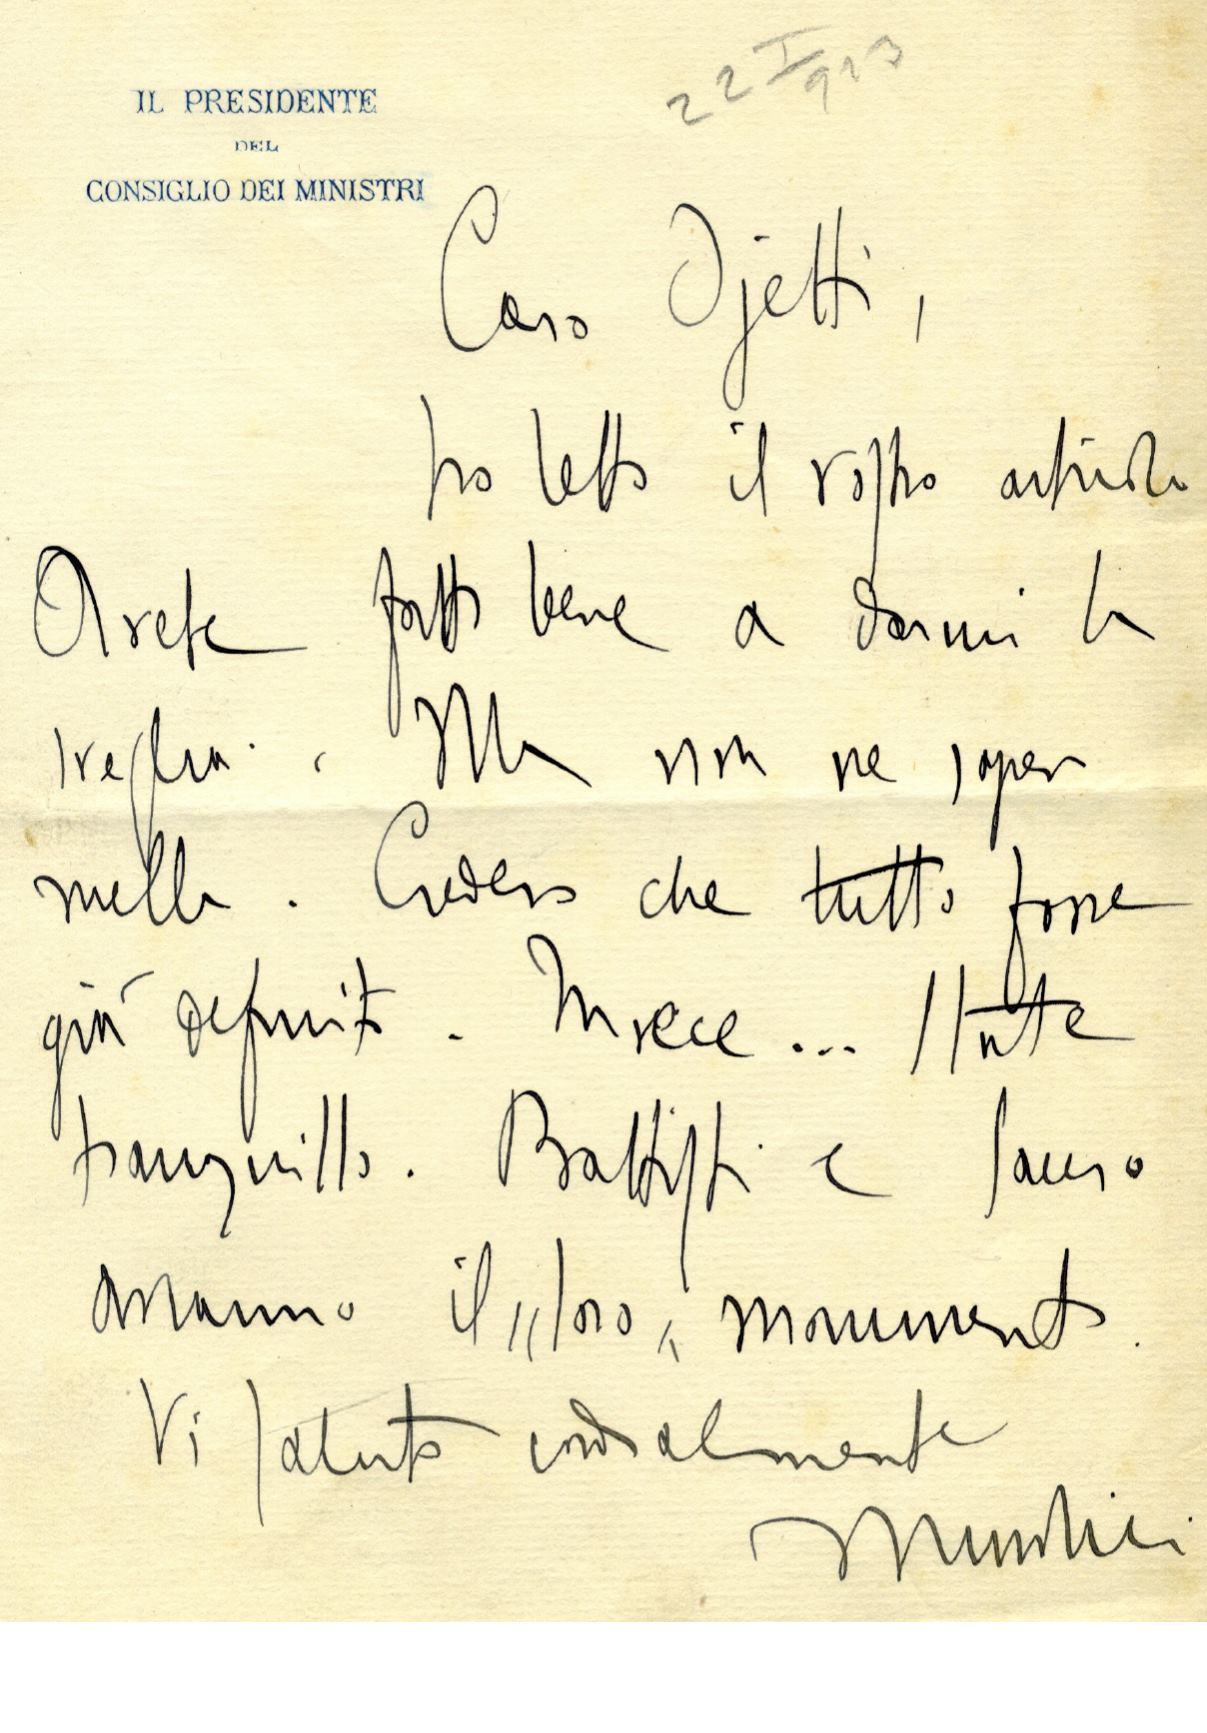 22 I 923
IL PRESIDENTE
DEL
CONSIGLIO DEI MINISTRI
Caro Ojetti,
ho letto il vostro articolo
Avete fatto bene a darmi la
sveglia. Ma non ne sapevo
nulla. Credevo che tutto fosse
già definito. Invece... State
tranquillo. Battisti e Sauro
avranno il "loro" monumento.
Vi saluto cordialmente
Mussolini